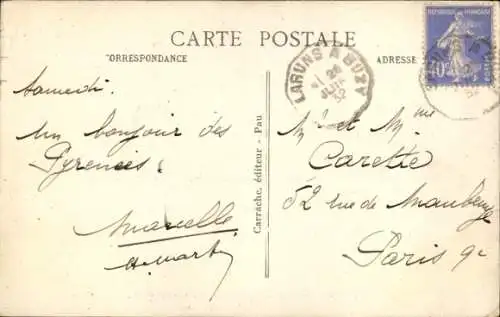 CARTE POSTALE
CORRESPONDANCE
ADRESSE
REPUBLIQUE FRANÇAISE
40c
POSTES
LARUNS A BUZY
26
JUI
32
Samedi.
Un bonjour des
Pyrénées.
Marcelle
Carrache, éditeur - Pau
Mr et Mme
Carette
52 rue de Maubeuge
Paris 9e